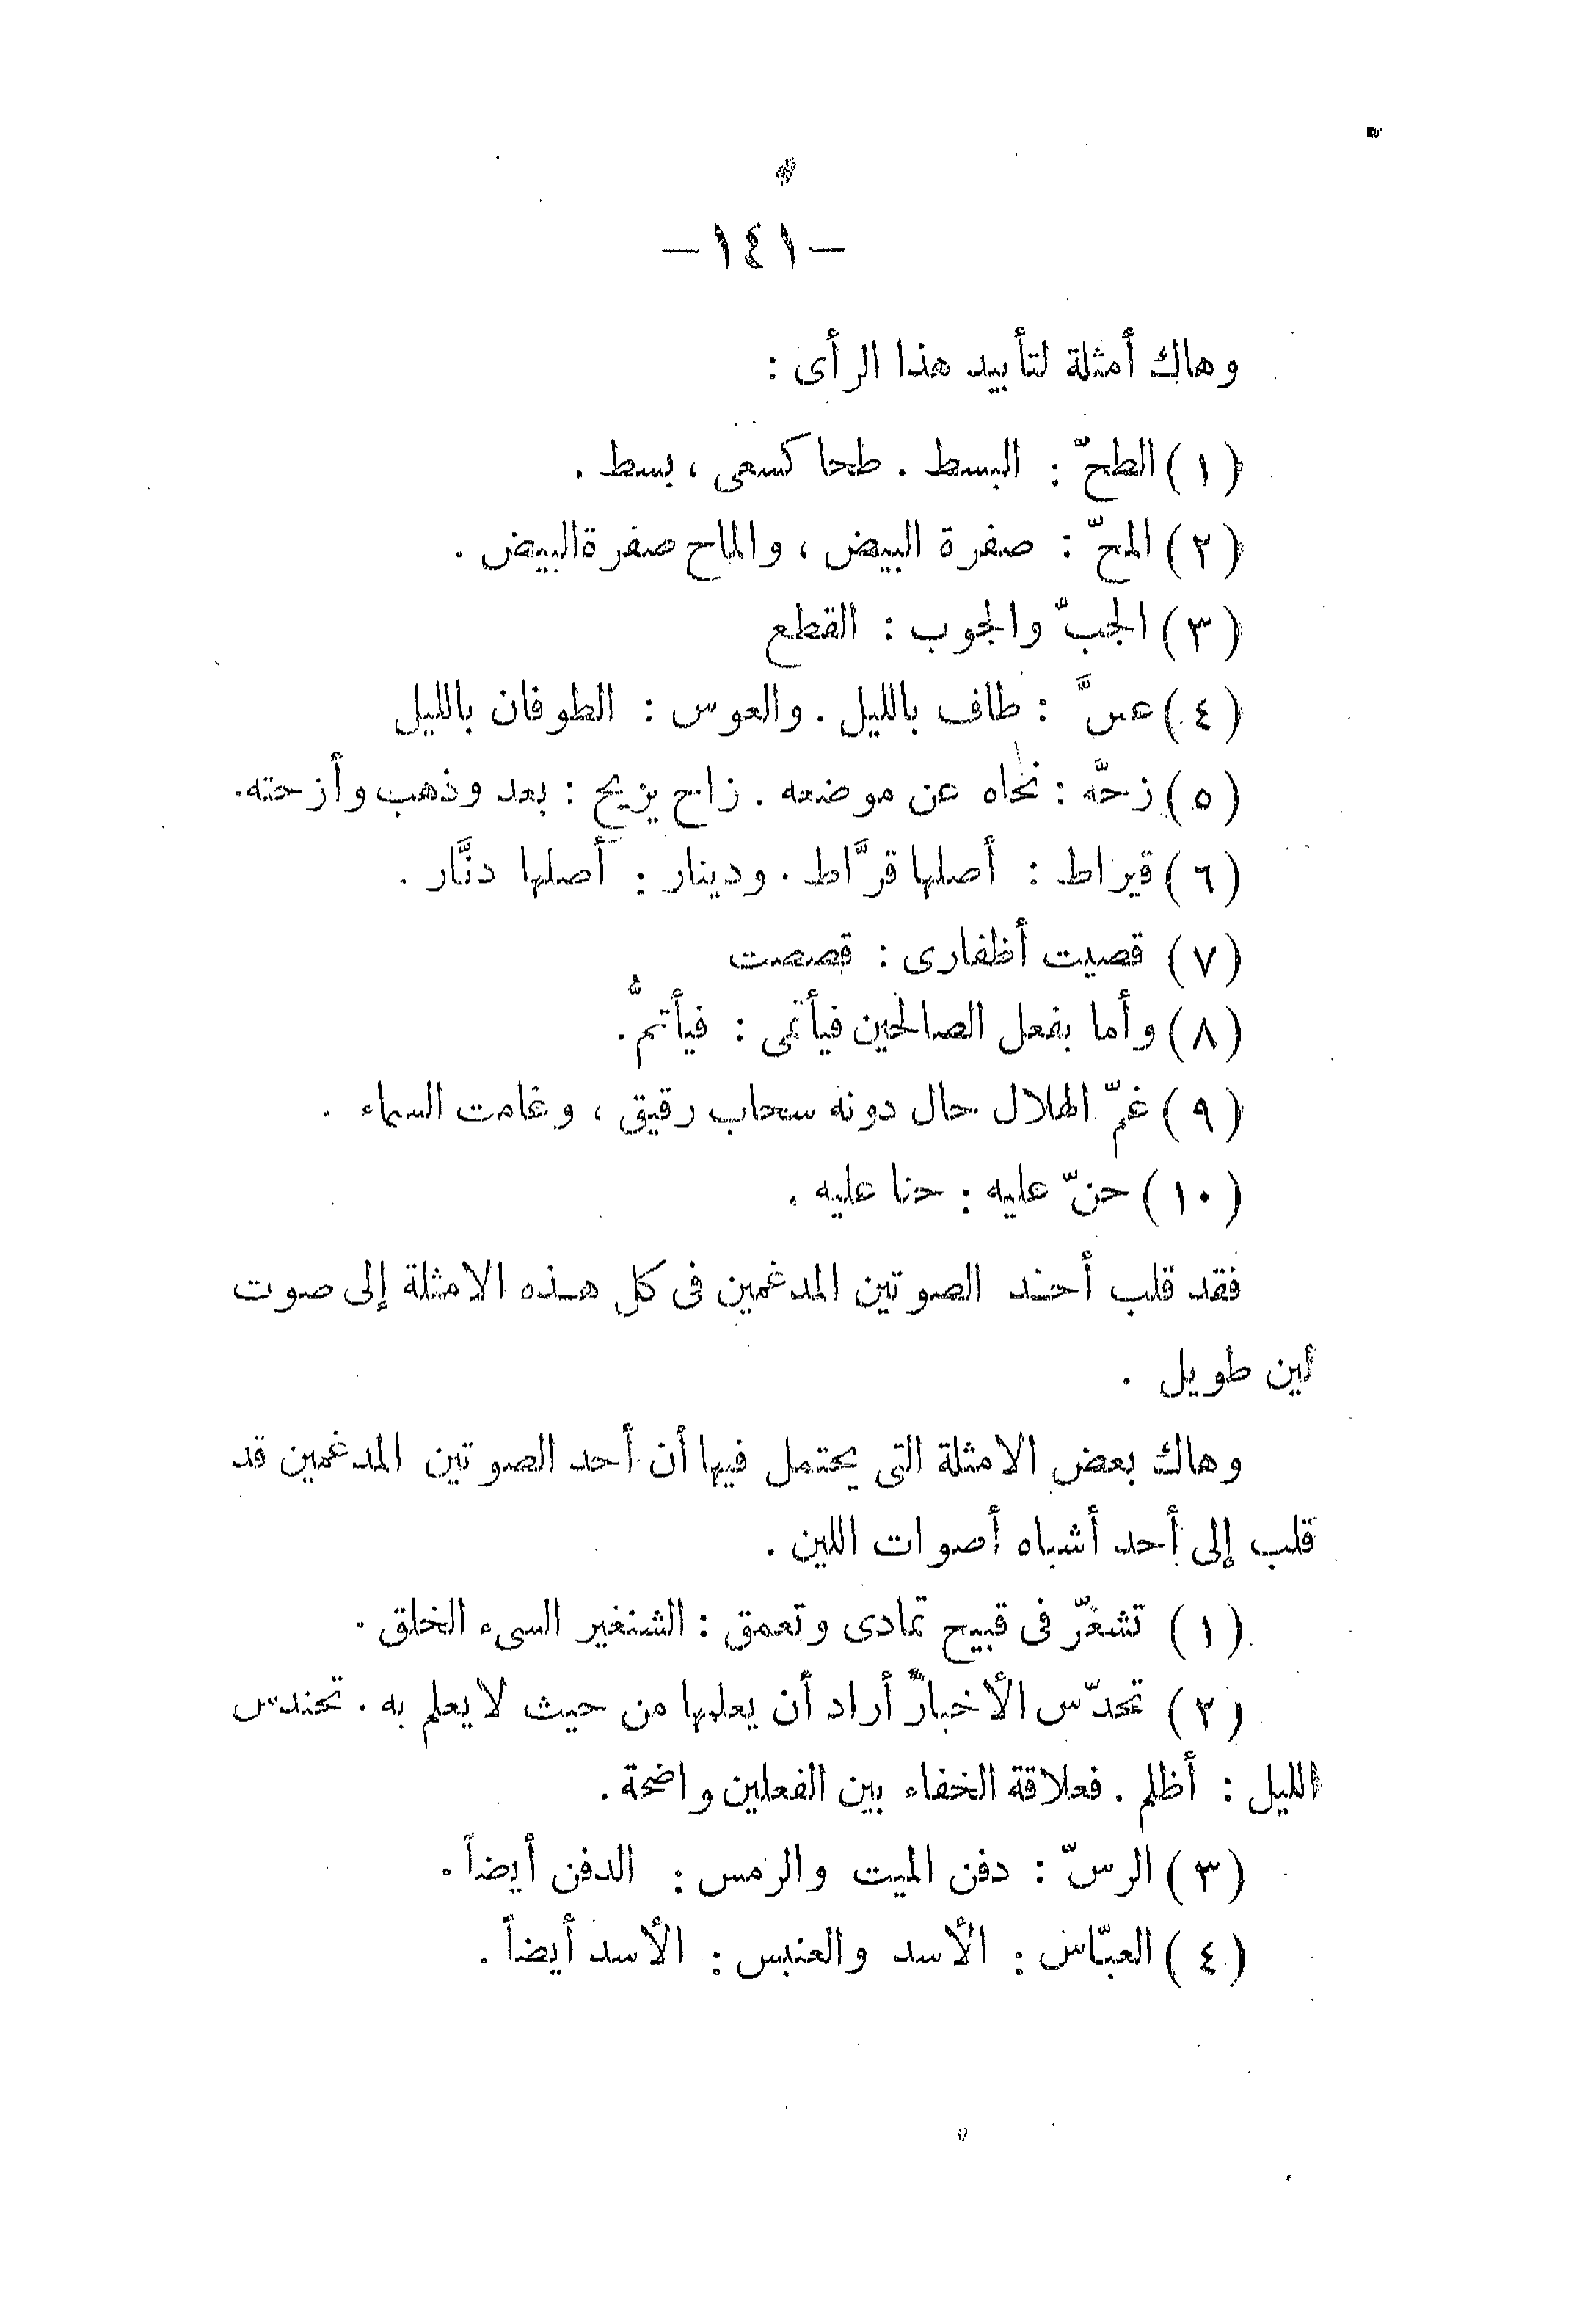 — ١٤١ —
وهاك أمثلة لتأييد هذا الرأى :
( ١ ) الطحّ : البسط . طحا كسعى ، بسط .
( ٢ ) المحّ : صفرة البيض ، والماح صفرة البيض .
( ٣ ) الجبّ والجوب : القطع
( ٤ ) عسَّ : طاف بالليل . والعوس : الطوفان بالليل
( ٥ ) زحَّه : نحَّاه عن موضعه . زاح يزيح : بعد وذهب وأزحته.
( ٦ ) قيراط : أصلها قرَّاط . ودينار : أصلها دنَّار .
( ٧ ) قصيت أظفارى : قصصت
( ٨ ) وأما بفعل الصالحين فيأتمى : فيأتمُّ.
( ٩ ) غمّ الهلال حال دونه سحاب رقيق ، وغامت السماء .
( ١٠ ) حنّ عليه : حنا عليه .
فقد قلب أحد الصوتين المدغمين فى كل هذه الامثلة إلى صوت
لين طويل .
وهاك بعض الامثلة التى يحتمل فيها أن أحد الصوتين المدغمين قد
قلب إلى أحد أشباه أصوات اللين .
( ١ ) تشغّر فى قبيح تمادى وتعمق : الشنغير السىء الخلق .
( ٢ ) تحدّس الأخبار أراد أن يعلمها من حيث لا يعلم به . تحندس
الليل : أظلم . فعلاقة الخفاء بين الفعلين واضحة .
( ٣ ) الرسّ : دفن الميت والرمس : الدفن أيضاً .
( ٤ ) العبّاس : الأسد والعنبس : الأسد أيضاً .